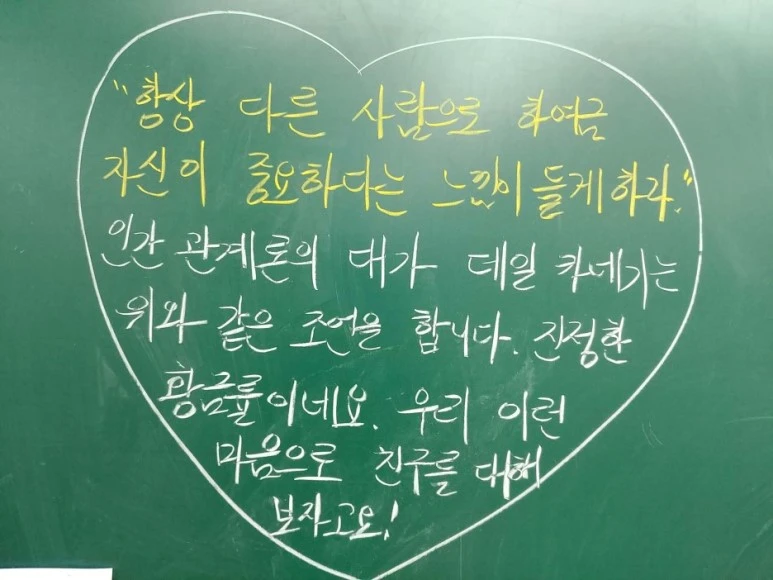 "항상 다른 사람으로 하여금
자신이 중요하다는 느낌이 들게하라."
인간 관계론의 대가 데일 카네기는
위와 같은 조언을 합니다. 진정한
황금률이네요. 우리 이런
마음으로 친구를 대해
보자고요!